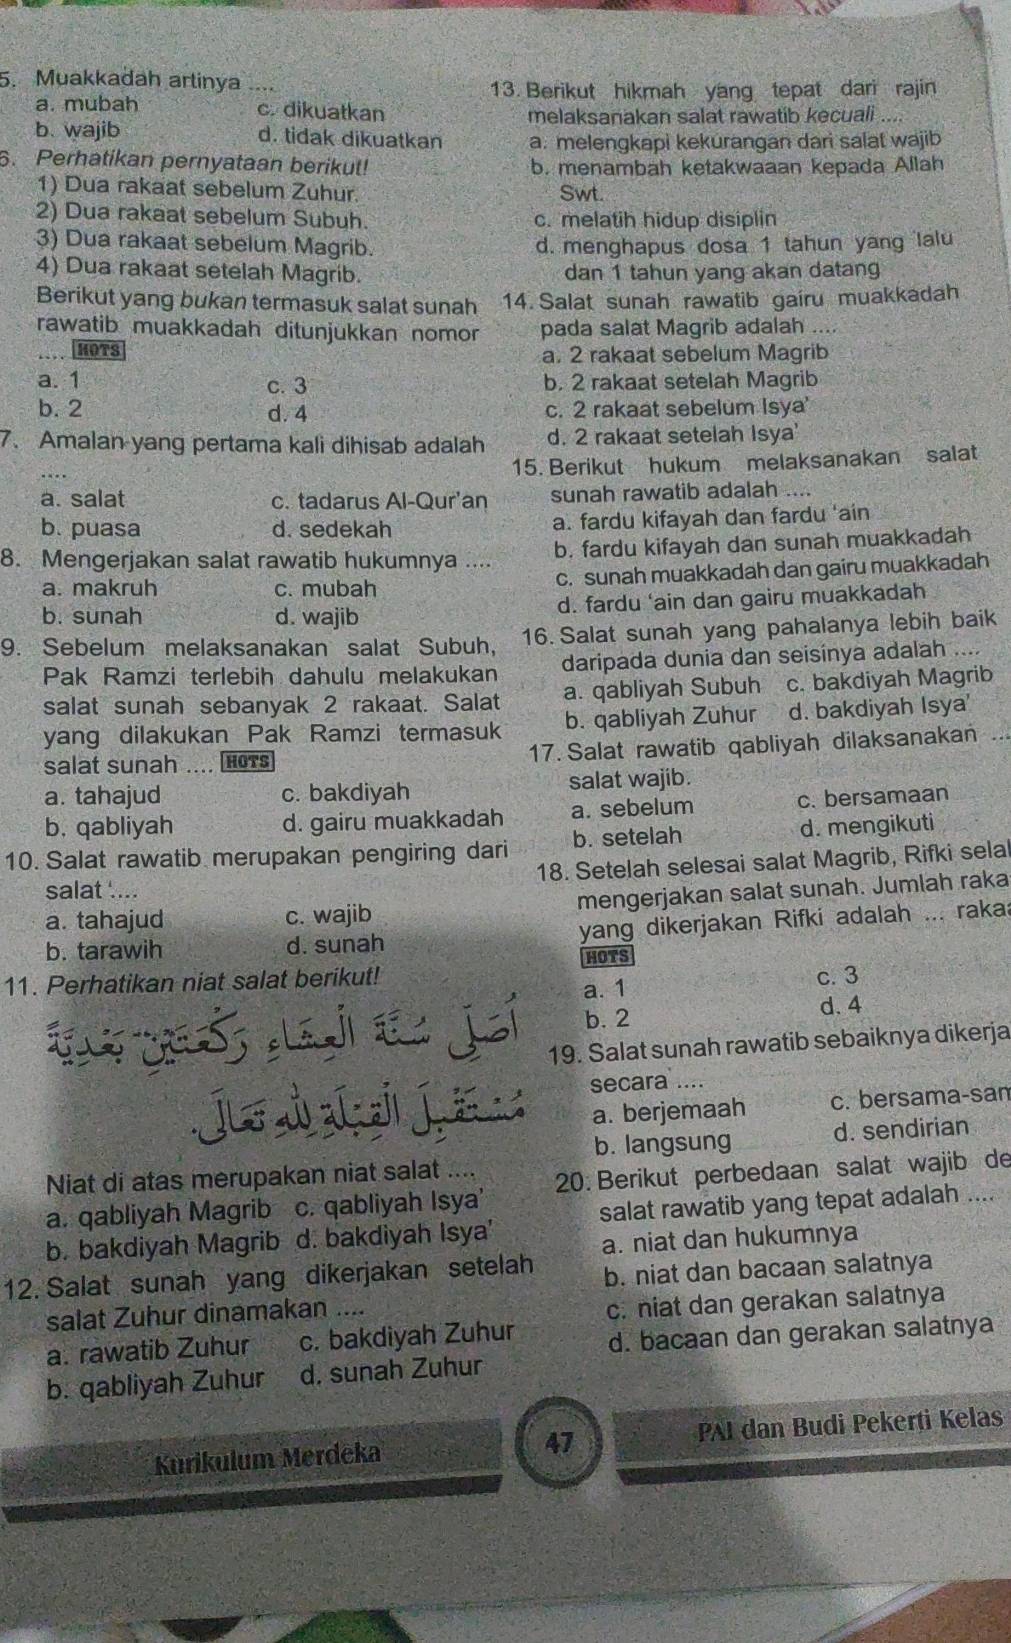 5. Muakkadah artinya ....
a. mubah c. dikuatkan
b. wajib d. tidak dikuatkan
6. Perhatikan pernyataan berikut!
1) Dua rakaat sebelum Zuhur.
2) Dua rakaat sebelum Subuh.
3) Dua rakaat sebelum Magrib.
4) Dua rakaat setelah Magrib.
Berikut yang bukan termasuk salat sunah
rawatib muakkadah ditunjukkan nomor
.... HOTS
a. 1 c. 3
b. 2 d. 4
7. Amalan yang pertama kali dihisab adalah
....
a. salat c. tadarus Al-Qur'an
b. puasa d. sedekah
8. Mengerjakan salat rawatib hukumnya ....
a. makruh c. mubah
b. sunah d. wajib
9. Sebelum melaksanakan salat Subuh,
Pak Ramzi terlebih dahulu melakukan
salat sunah sebanyak 2 rakaat. Salat
yang dilakukan Pak Ramzi termasuk
salat sunah .... HOTS
a. tahajud c. bakdiyah
b. qabliyah d. gairu muakkadah
10. Salat rawatib merupakan pengiring dari
salat ....
a. tahajud c. wajib
b. tarawih d. sunah
11. Perhatikan niat salat berikut!
أُصَلِّى سُنَّةَ الْعِشَاءِ رَكْعَتَيْنِ بَعْدِيَّةً
مُسْتَقْبِلَ الْقِبْلَةِ لِلّٰهِ تَعَالَى.
Niat di atas merupakan niat salat ....
a. qabliyah Magrib c. qabliyah Isya'
b. bakdiyah Magrib d. bakdiyah Isya'
12. Salat sunah yang dikerjakan setelah
salat Zuhur dinamakan ....
a. rawatib Zuhur c. bakdiyah Zuhur
b. qabliyah Zuhur d. sunah Zuhur
13. Berikut hikmah yang tepat dari rajin
melaksanakan salat rawatib kecuali ....
a. melengkapi kekurangan dari salat wajib
b. menambah ketakwaaan kepada Allah
Swt.
c. melatih hidup disiplin
d. menghapus dosa 1 tahun yang lalu
dan 1 tahun yang akan datang
14. Salat sunah rawatib gairu muakkadah
pada salat Magrib adalah ....
a. 2 rakaat sebelum Magrib
b. 2 rakaat setelah Magrib
c. 2 rakaat sebelum Isya'
d. 2 rakaat setelah Isya'
15. Berikut hukum melaksanakan salat
sunah rawatib adalah ....
a. fardu kifayah dan fardu 'ain
b. fardu kifayah dan sunah muakkadah
c. sunah muakkadah dan gairu muakkadah
d. fardu 'ain dan gairu muakkadah
16. Salat sunah yang pahalanya lebih baik
daripada dunia dan seisinya adalah ....
a. qabliyah Subuh c. bakdiyah Magrib
b. qabliyah Zuhur d. bakdiyah Isya'
17. Salat rawatib qabliyah dilaksanakan ...
salat wajib.
a. sebelum c. bersamaan
b. setelah d. mengikuti
18. Setelah selesai salat Magrib, Rifki selal
mengerjakan salat sunah. Jumlah raka
yang dikerjakan Rifki adalah ... raka
HOTS
a. 1 c. 3
b. 2 d. 4
19. Salat sunah rawatib sebaiknya dikerja
secara ....
a. berjemaah c. bersama-sam
b. langsung d. sendirian
20. Berikut perbedaan salat wajib de
salat rawatib yang tepat adalah ....
a. niat dan hukumnya
b. niat dan bacaan salatnya
c. niat dan gerakan salatnya
d. bacaan dan gerakan salatnya
Kurikulum Merdeka 47 PAI dan Budi Pekerti Kelas